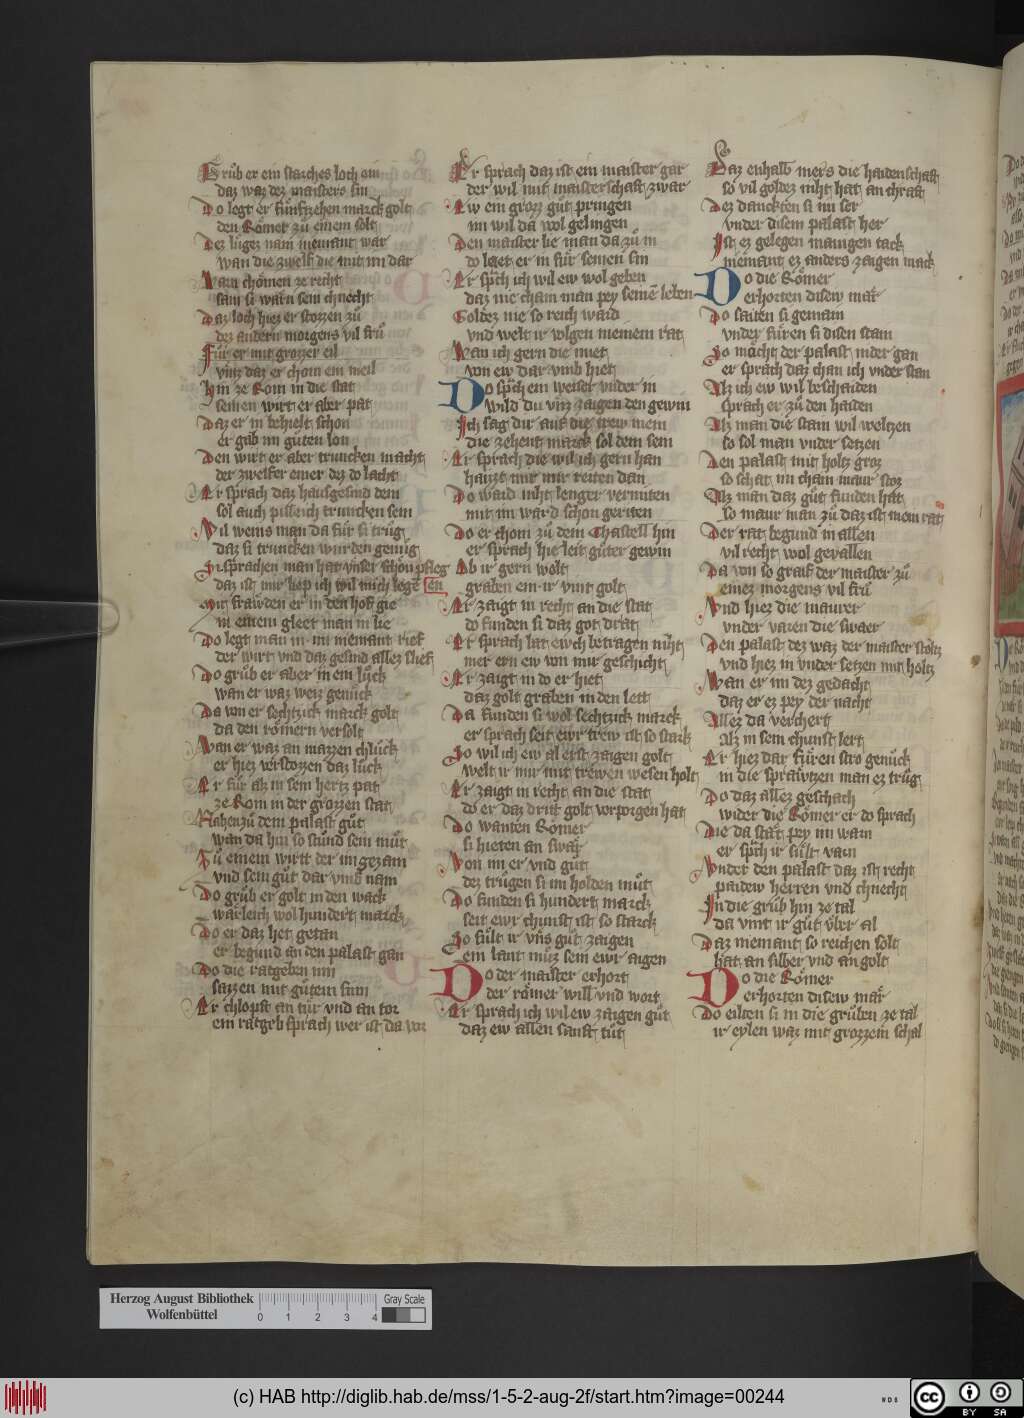 Grůb er ein starches loch ein
daz waz dez maisters sin
Do legt er fünftzehen marck golt
den Römer zů einem solt
Dez lugez nam niemant war
wan die zwelf die mit im dar
Warn chömen ze recht
sam si wärn sein chnecht
Daz loch hiez er stozzen zů
dez andern morgens vil frů
Für er mit grozzer eil
vntz daz er chom ein meil
Hin ze Rom in die stat
seinen wirt er aber pat
Daz er in behielt schon
er gäb im gůten lon
Den wirt er aber truncken macht
der zwelfer einer dez do lacht
Er sprach daz hausgesind dein
sol auch pilleich truncken sein
Vil weins man da für si trůg
daz si truncken wurden genůg
Si sprachen man hat vnser schön pfleg
daz ist mir liep ich wil mich legen
Mit fräwden er in den hof gie
in einem gleet man in lie
Do legt man in im niemant rief
der wirt vnd daz gesind allez slief
Do grůb er aber in ein lůck
wan er waz weiz genůck
Da von er sechtzick marck golt
da den römern versolt
Wan er waz an mazzen chlůck
er hiez verstozzen daz lůck
Er für alz in sein hertz pat
ze Rom in der grozzen stat
Nahen zů dem palast gůt
wan da hin so stůnd sein můt
Zů einem wirtt der ungezam
vnd sein gůt dar vmb nam
Do grůb er golt in den wack
wärleich wol hundert marck
Do er daz het getan
er begund an den palast gan
Do die ratgeben inn
sazzen mit gůtem sinn
Er chlopft an tür vnd an tor
ein ratgeb sprach wer ist da vor
Er sprach daz ist ein maister gar
der wil mit maisterschaft zwar
Ew ein groz gůt pringen
im wil da wol gelingen
Den maister lie man da zů in
do leget er in für seinen sin
Er sprch ich wil ew wol geben
daz nie cham man pey seinem leben
Goldez nie so reich ward
vnd welt ir volgen meinem rat
Wan ich gern die miet
von ew dar vmb hiet
Do sprch ein weiser vnder in
wild du vnz zaigen den gewin
Ich sag dir auf die trew mein
die zehent marck sol dein sein
Er sprach die wil ich gern han
haizt mir mir reiten dan
Do ward niht lenger vermiten
mit im ward schon geriten
Do er chom zů dem Chastell hin
er sprach hie leit gůter gewin
Ob ir gern wolt
graben ein ir vint golt
Er zaigt in recht an die stat
do funden si daz got drat
Er sprach lat ewch betragen niht
mer ern ew von mir geschicht
Er zaigt in do er hiet
daz golt graben in den lett
Da funden si wol sechtzick marck
er sprach seit ewr trew ist so starck
So wil ich ew al erst zaigen golt
welt ir mir mit trewen wesen holt
Er zaigt in recht an die stat
do er daz drit golt vorporgen hat
Do wanten Römer
si hieten an swär
Von im er vnd gůt
dez trůgen si im holden můt
Do funden si hundert marck
seit ewr chunst ist so starck
So sült ir vns gůt zaigen
ein lant můz sein ewr aigen
Do der maister erhort
der römer will vnd wort
Er sprach ich wil ew zaigen gůt
daz ew allen sanft tůt
Daz enhalb mers die haidenschaft
so vil goldez niht hat an chraft
Dez danckten si im ser
vnder disem palast her
Ist ez gelegen manigen tack
niemant ez anders zaigen mack
Do die Römer
erhorten disew mär
Do saiten si gemain
vnder füren si disen stain
So möcht der palast nider gan
er sprach daz chan ich vnder stan
Alz ich ew wil beschaiden
sprach er zů den haiden
Alz man die stain wil weltzen
so sol man vnder setzen
Den palast mit holtz groz
so schat im chain maur stoz
Alz man daz gůt funden hat
so maur man zů daz ist mein rat
Der rat begund in allen
vil recht wol gevallen
Da von so graif der maister zů
einez morgens vil frů
Vnd hiez die maurer
vnder varen die swaer
Den palast dez waz der maister stoltz
vnd hiez in vnder setzen mit holtz
Wan er im dez gedacht
daz er ez pey der nacht
Allez da verchert
alz in sein chunst lert
Er hiez dar füren stro genůck
in die spräwtzen man ez trůg
Do daz allez geschach
wider die Römer er do sprach
Die da stät pey im warn
er sprch ir sült varn
Vnder den palast daz ist recht
paidew herren vnd chnecht
In die grůb hin ze tal
da vint ir gůt vber al
Daz niemant so reichen solt
hat an silber vnd an golt
Do die Römer
erhorten disew mär
Do eilten si in die grůben ze tal
ir eylen waz mit grozzem schal
Herzog August Bibliothek
Wolfenbüttel
0 1 2 3 4
Gray Scale
(c) HAB http://diglib.hab.de/mss/1-5-2-aug-2f/start.htm?image=00244
WDB
cc
BY SA